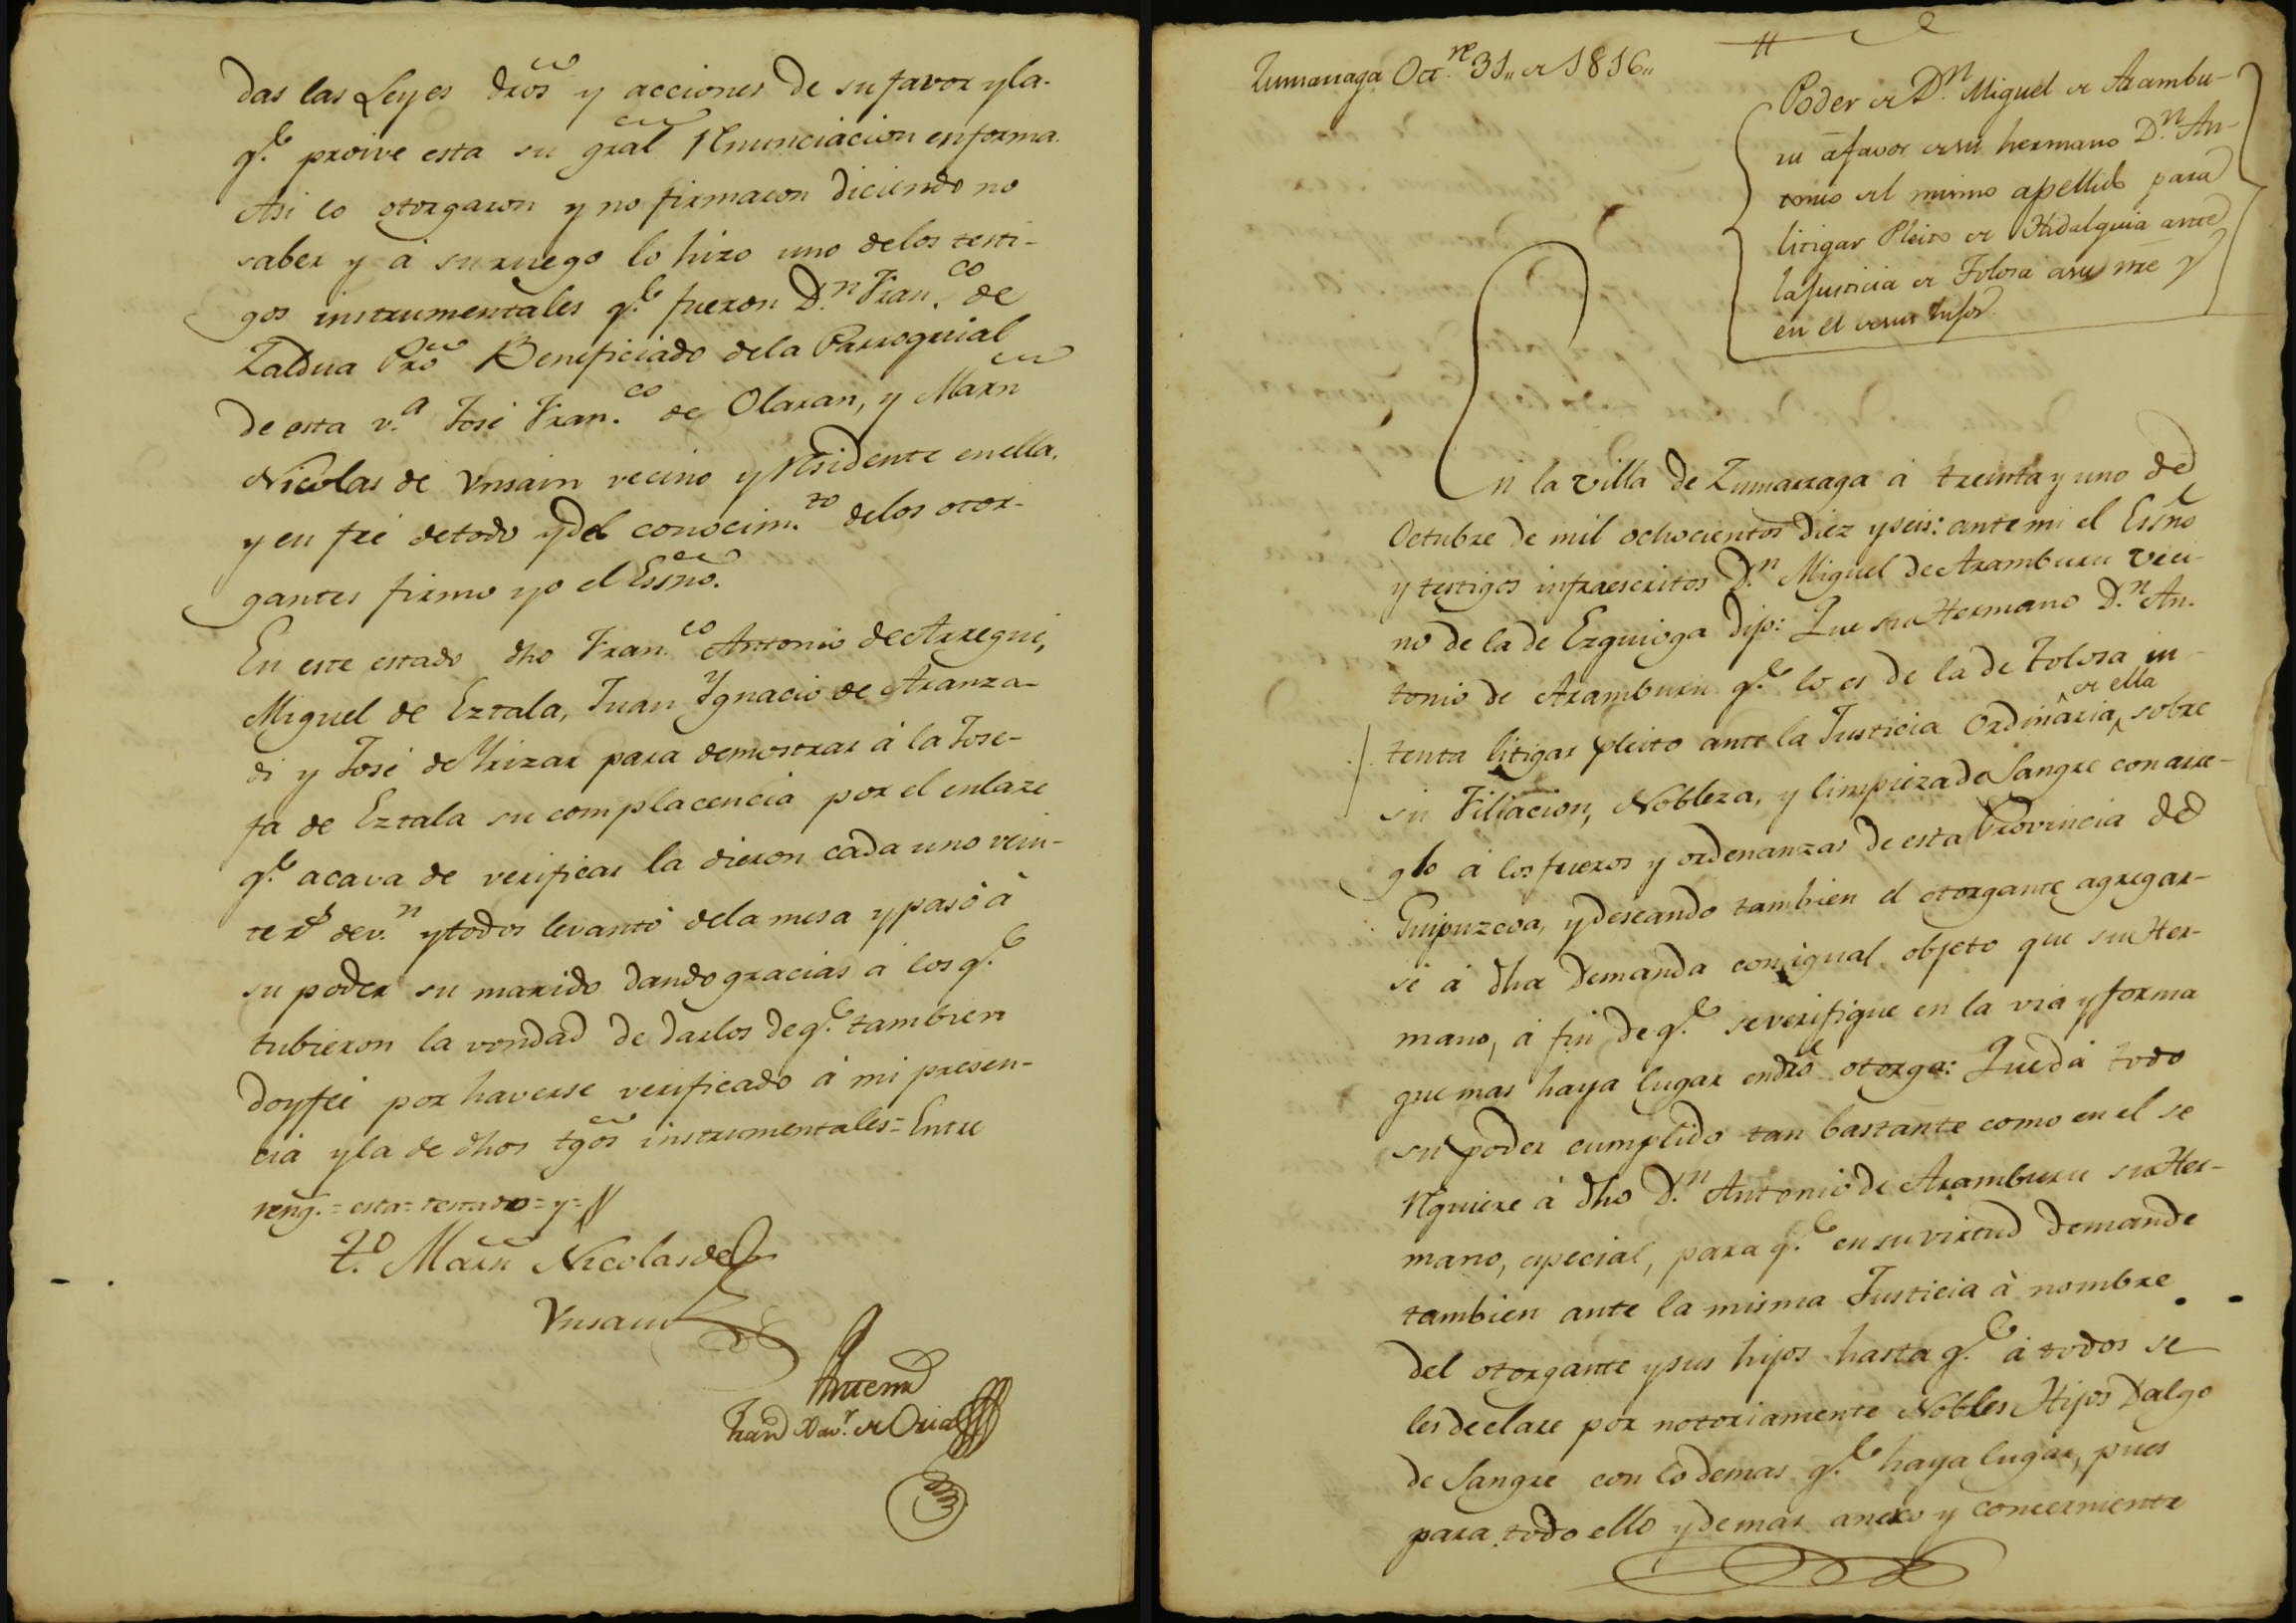 das las Leyes dros y acciones de su favor y la
q.e proive esta su gral renunciacion en forma.
Asi lo otorgaron y no firmaron diciendo no
saber y á su ruego lo hizo uno de los testi-
gos instrumentales q.e fueron D.n Fran.co de
Zaldua Pro Beneficiado de la Parroquial
de esta v.a José Fran.co de Olaran, y Marn
Nicolas de Unsain vecino y residente en ella,
y en feé de todo y del conocim.to de los otor-
gantes firmo yo el Essno.
En este estado dho Fran.co Antonio de Arregui,
Miguel de Eztala, Juan Ygnacio de Aranza-
di y José de Yrizar para demostrar á la Jose-
fa de Eztala su complacencia por el enlaze
q.e acava de verificar la dieron cada uno vein-
te r.s de v.n y todos levantó de la mesa y pasó à
su poder su marido dando gracias á los q.e
tubieron la vondad de darlos de q.e tambien
doy feé por haverse verificado á mi presen-
cia y la de dhos tgos instrumentales = Entre
reng. = esta = testado = y =
t.o Marn Nicolas de
Unsain
Antemi
Fran.co Xav.r de Oria
Zumarraga Oct.re 31,, de 1816,,
Poder de D.n Miguel de Arambu-
ru à favor de su hermano D.n An-
tonio del mismo apellido para
litigar Pleito de Hidalguia ante
la Justicia de Tolosa a su nre y
en el de sus hijos.
En la villa de Zumarraga á treinta y uno de
Octubre de mil ochocientos diez y seis: ante mi el Essno
y testigos infraescritos D.n Miguel de Aramburu veci-
no de la de Ezquioga dijo: Que su Hermano D.n An-
tonio de Aramburu q.e lo es de la de Tolosa in-
de ella
tenta litigar pleito ante la Justicia Ordinaria sobre
su Filiacion, Nobleza, y limpieza de Sangre con arre-
glo á los fueros y ordenanzas de esta Provincia de
Guipuzcoa, y deseando tambien el otorgante agregar-
se á dha Demanda con igual objeto que su Her-
mano, á fin de q.e se verifique en la via y forma
que mas haya lugar en dro otorga: Que dá todo
su poder cumplido tan bastante como en el se
requiere á dho D.n Antonio de Aramburu su Her-
mano, especial, para q.e en su virtud demande
tambien ante la misma Justicia à nombre
del otorgante y sus hijos hasta q.e á todos se
les declare por notoriamente Nobles Hijos Dalgo
de Sangre con lo demas q.e haya lugar, pues
para todo ello y demas anexo y concerniente